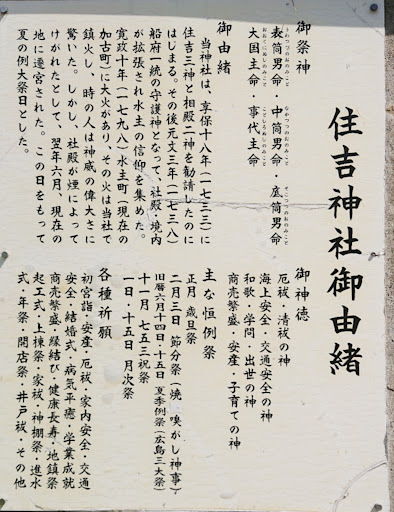 住吉神社御由緒
御祭神
表筒男命・中筒男命・底筒男命
うわつつのおのみこと なかつつのおのみこと そこつつのおのみこと
大国主命・事代主命
おおくにぬしのみこと ことしろぬしのみこと
御由緒
当神社は、享保十八年(一七三三)に
住吉三神と相殿二神を勧請したのに
はじまる。その後元文三年(一七三八)
船府一統の守護神となって、社殿・境内
が拡張され水主の信仰を集めた。
寛政十年(一七九八)水主町(現在の
加古町)に大火があり、その火は当社で
鎮火し、時の人は神威の偉大さに
驚いた。しかし、社殿が煙によって
けがれたとして、翌年六月、現在の
地に遷宮された。この日をもって
夏の例大祭日とした。
御神徳
厄祓・清祓の神
海上安全・交通安全の神
和歌・学問・出世の神
商売繁盛・安産・子育ての神
主な恒例祭
正月 歳旦祭
二月三日 節分祭(焼嗅がし神事)
旧暦六月十四日・十五日 夏季例祭(広島三大祭)
十一月 七五三祝祭
一日・十五日 月次祭
各種祈願
初宮詣・安産・厄祓・家内安全・交通
安全・結婚式・病気平癒・学業成就
商売繁盛・縁結び・健康長寿・地鎮祭
起工式・上棟祭・家祓・神棚祭・進水
式・年祭・開店祭・井戸祓・その他